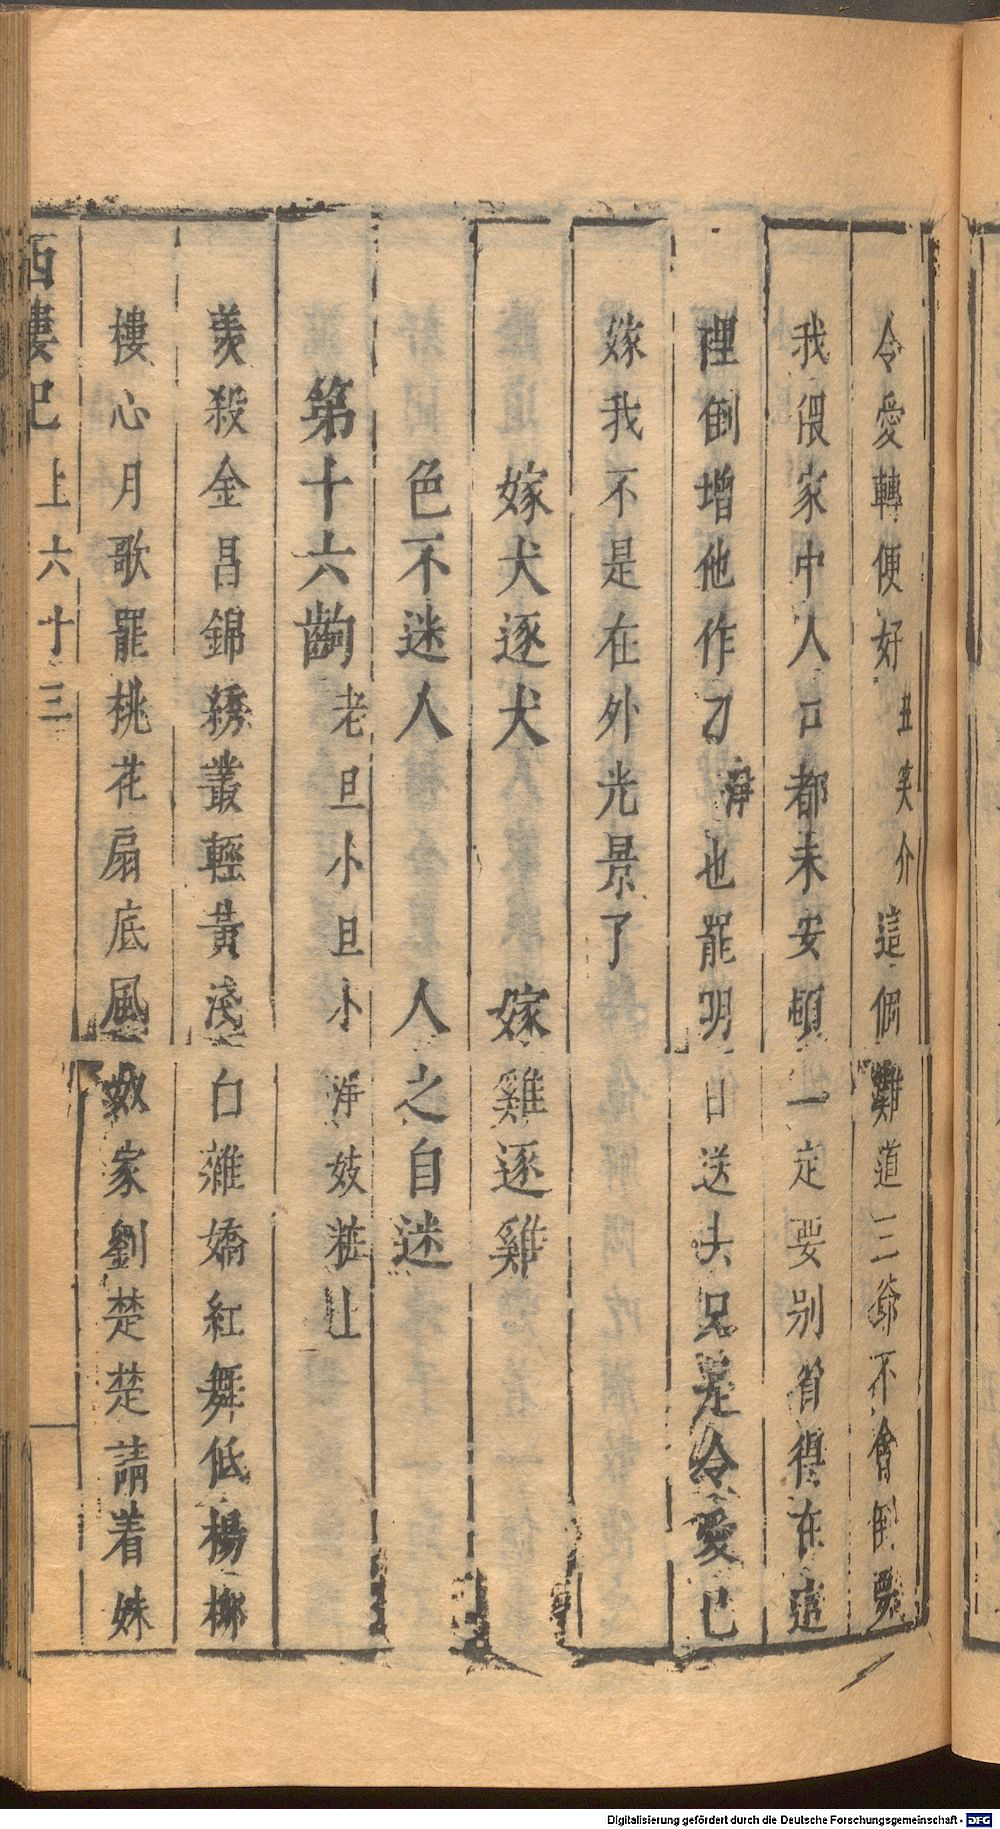 令愛轉便好丑笑介這個難道三爺不會倒要
我偎家中人口都未安頓一定要别省得在這
裡倒增他作刁淨也罷明日送去只是令愛已
嫁我不是在外光景了
嫁犬逐犬　嫁雞逐雞
色不迷人　人之自迷
第十六齣老旦小旦小淨妓粧上
羙殺金昌錦綉叢輕黃淺白雜嬌紅舞低楊柳
樓心月歌罷桃花扇底風奴家劉楚楚請着妹
西樓記上六十三
Digitalisierung gefördert durch die Deutsche Forschungsgemeinschaft - DFG